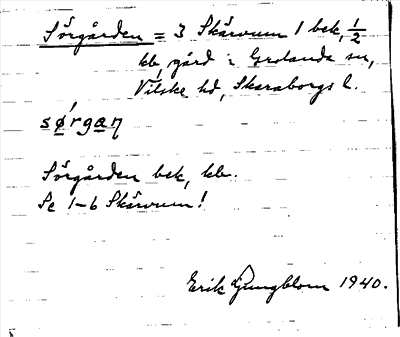 Sörgården = 3 Skärvum 1 bek, 1/2
kb, gård i Grolanda sn,
Vilske hd, Skaraborgs l.
sǿrgaɳ
Sörgården bek, kb.
Se 1-6 Skärvum!
Erik Ljungblom 1940.